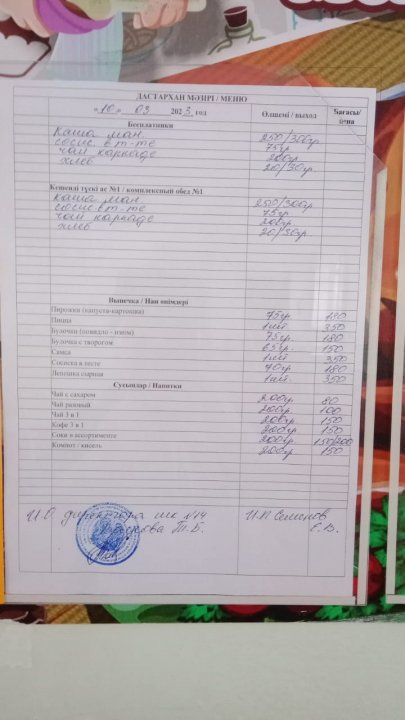 ДАСТАРХАН МӘЗІРІ / МЕНЮ
«10» 03 2023 год Өлшемі / выход Бағасы/цена
Бесплатники
Каша ман 250/300гр
сосис. в т-те 75гр
чай каркаде 200гр
хлеб 20/30гр.
Кешенді түскі ас №1 / комплексный обед №1
Каша ман 250/300гр
сосис в т-те 75гр
чай каркаде 200гр
хлеб 20/30гр.
Выпечка / Нан өнімдері
Пирожки (капуста-картошка) 75гр. 180
Пицца 1шт 350
Булочки (повидло - изюм) 75гр. 180
Булочки с творогом 65гр. 150
Самса 1шт 350
Сосиска в тесте 70гр 180
Лепешка сырная 1шт. 350
Сусындар / Напитки
Чай с сахаром 200гр 80
Чай разовый 200гр 100
Чай 3 в 1 200гр 150
Кофе 3 в 1 200гр 150
Соки в ассортименте 200гр 150/200
Компот / кисель 200гр 150
И.О директора шк №14 ИП Семенов
Т.Б. Е.В.